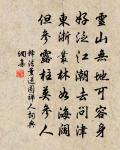 靈山無地可容身
好泛江潮去問津
東浙叢林如海闊
但參露柱莫參人
釋法薰送因禪人詞典
網集